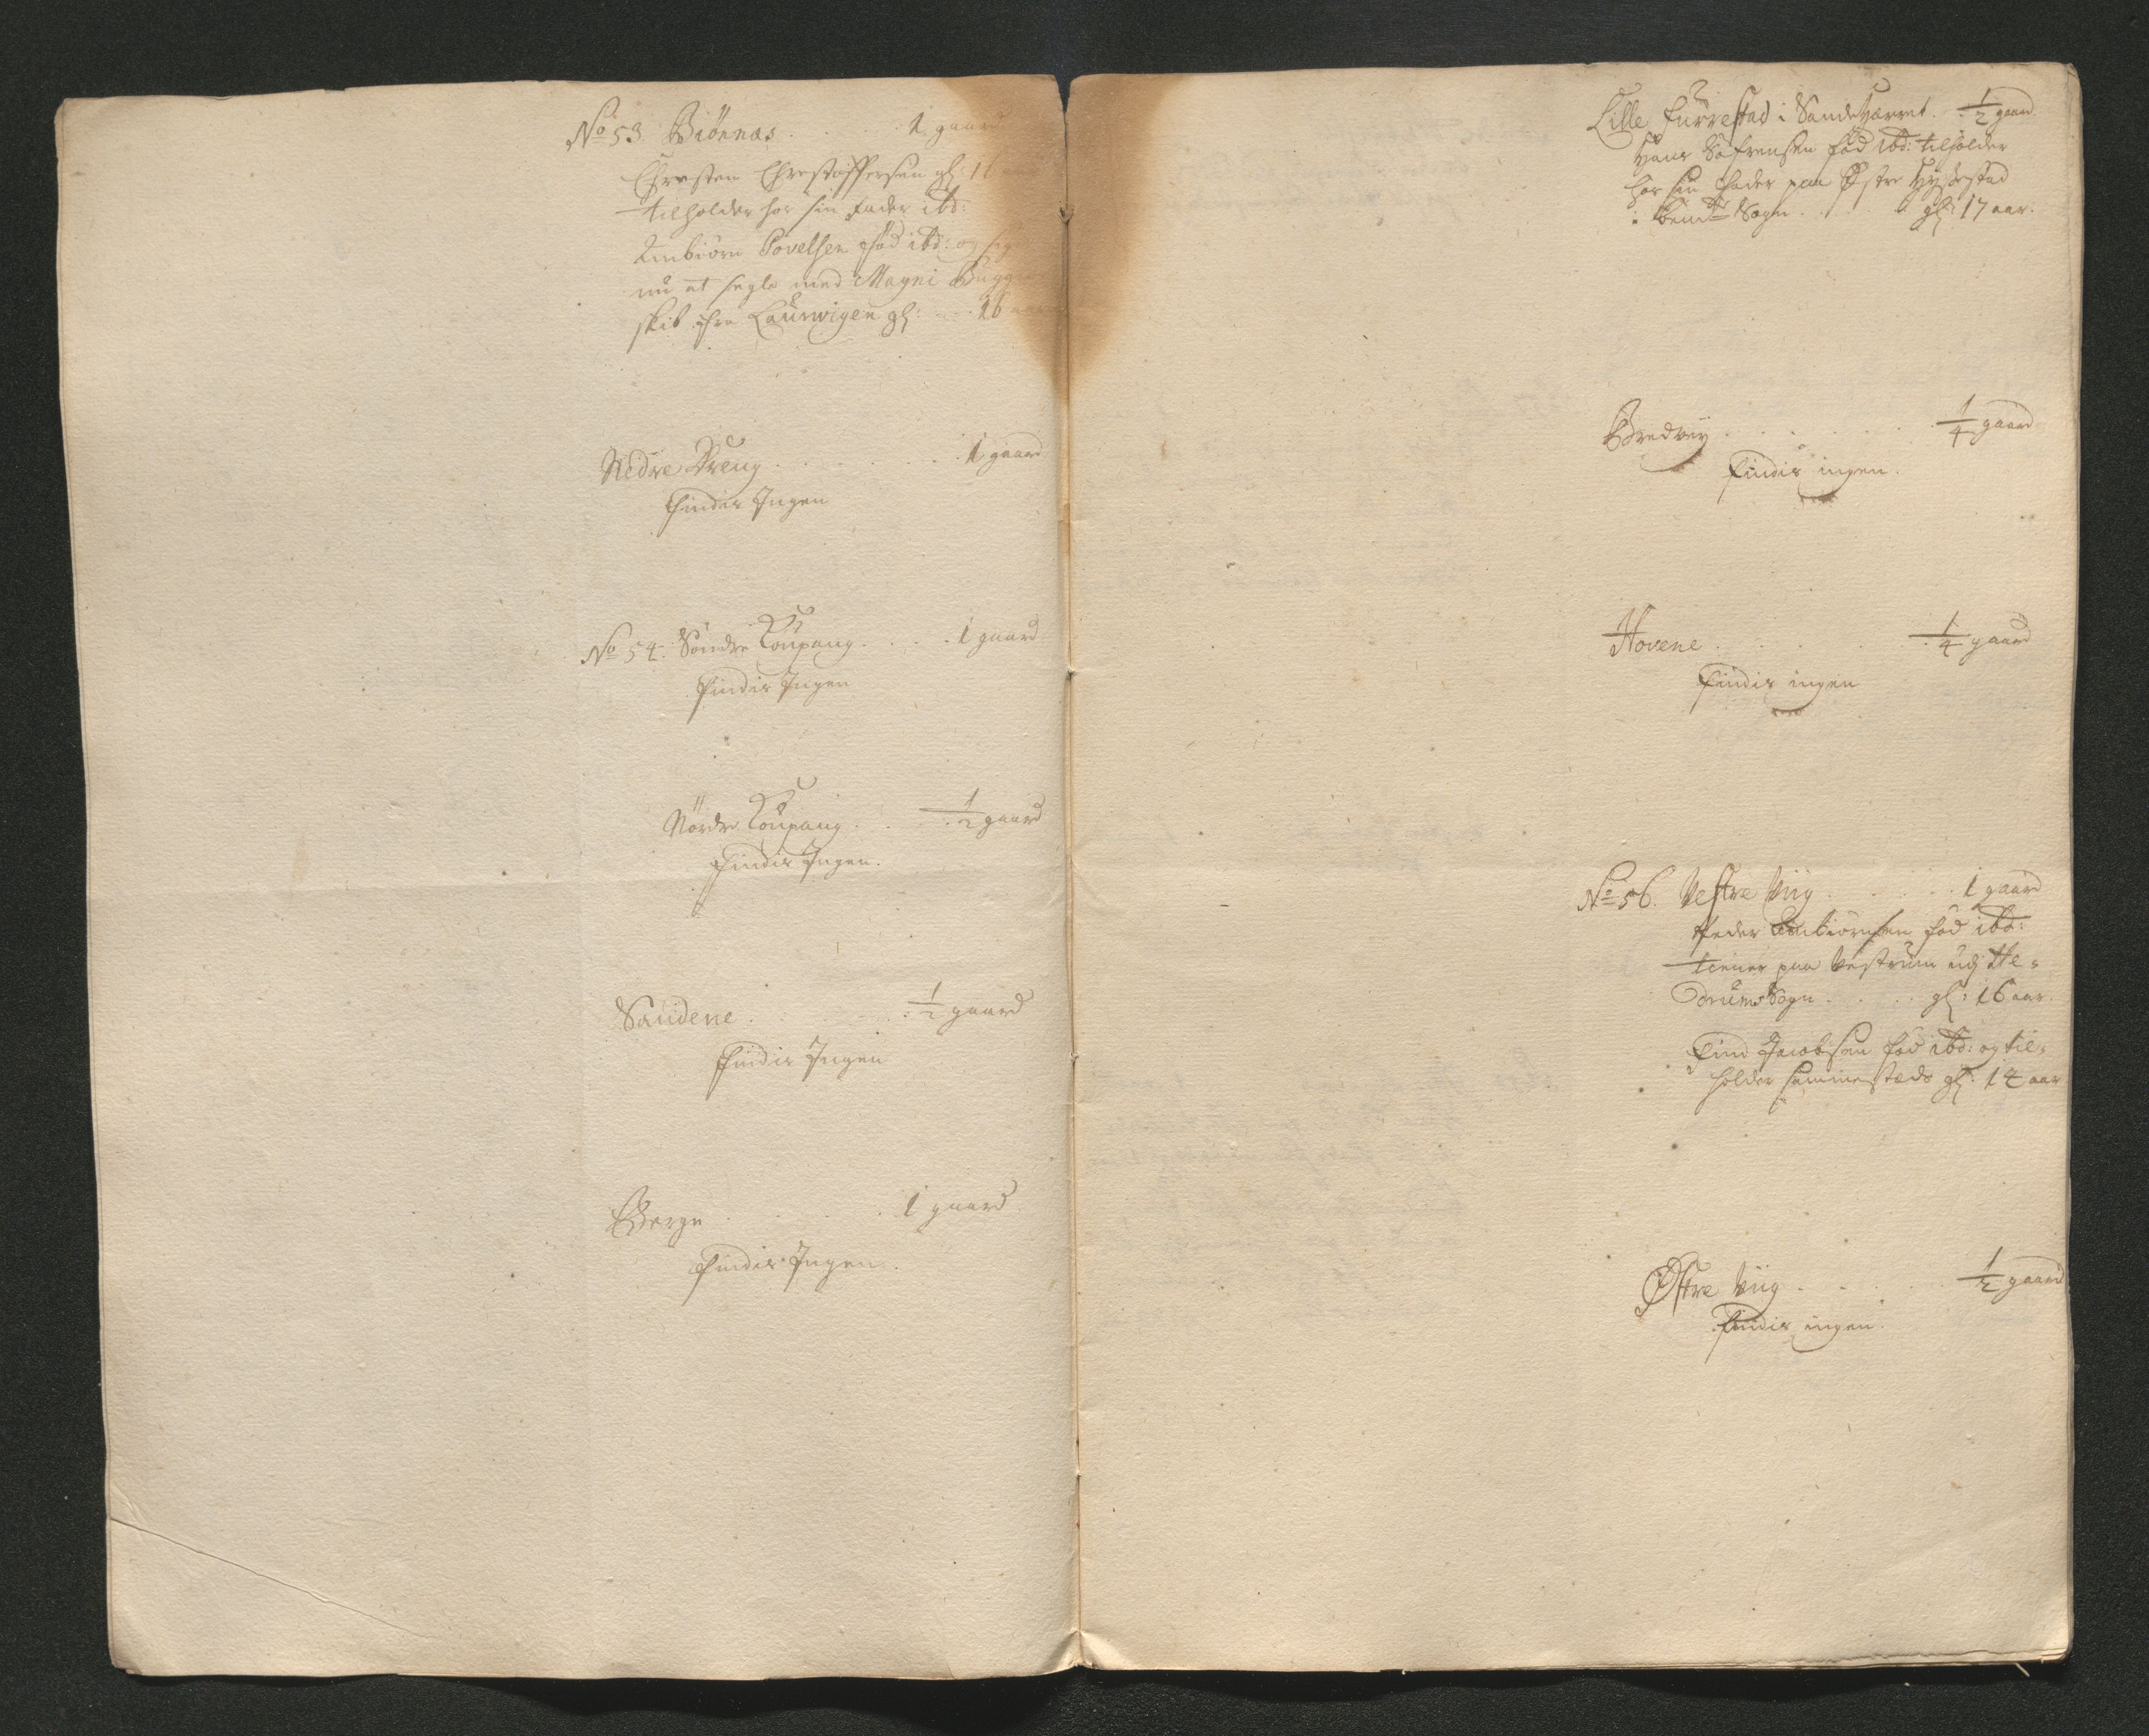 No 53. Biönnas . . . . 1 gaard
Christen Christoffersen gl: 11
tilholder hos sin Fader ibd:
Anbiörn Povelsen föd ibd: og
nu at segle med Mogni Bugge
skib fra Laurwigen gl: . . . 16 aar
Nedre Breug . . . . . . 1 gaard
Findis Ingen
No 54. Söndre Koupang . . . . 1 gaard
Findis Ingen
Nördre Koupang . . . ½ gaard
Findis Ingen.
Sandene . . . . . ½ gaard
Findis Ingen
Berge . . . . . 1 gaard
Findis Ingen.
Lille Furrestad i Sandeherret. ½ gaard
Hans Söfrensen föd ibd: tilholder
hos sin Fader paa Østre
i bemte Sogn . . . . gl: 17 aar.
Bredvey . . . . . . ¼ gaard
Findis ingen.
Hovene . . . . . ¼ gaard
Findis ingen
No 56. Vestre Viig . . . . . 1 gaard
Peder Anbiörnsen föd ibd:
tiener paa Vestrum udj He=
drums Sogn . . . . gl: 16 aar.
Find Jacobsen föd ibd: og til=
holder sammestæds gl: 14 aar
Østre Viig . . . . . ½ gaard
Findis ingen.